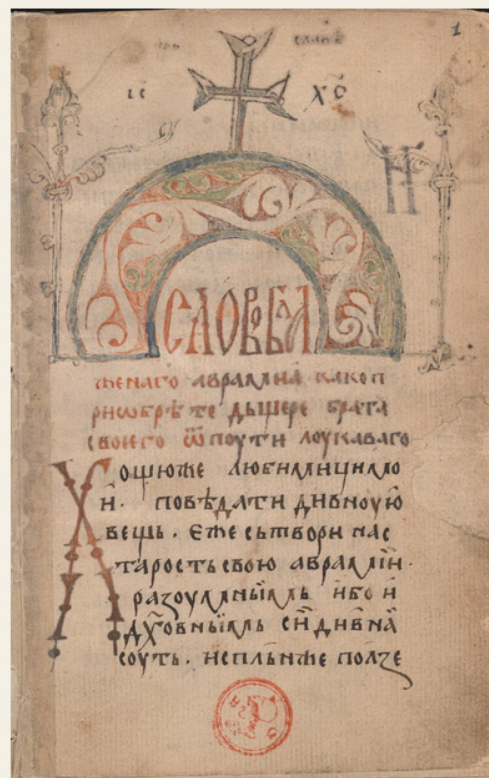 1
ІС ХС
СЛОВО БЛА
женаго аврамиа како п
риѡбрѣте дьщере брата
своего ѿ поути лоукаваго
Хощюже любимици мо
и · повѣдати дивноую
вещь · Еже сьтвори на с
тарость свою аврамїи ·
разоумныимь ибо и
дх҃овныимь сїи дивна
соуть · испльнже ползе